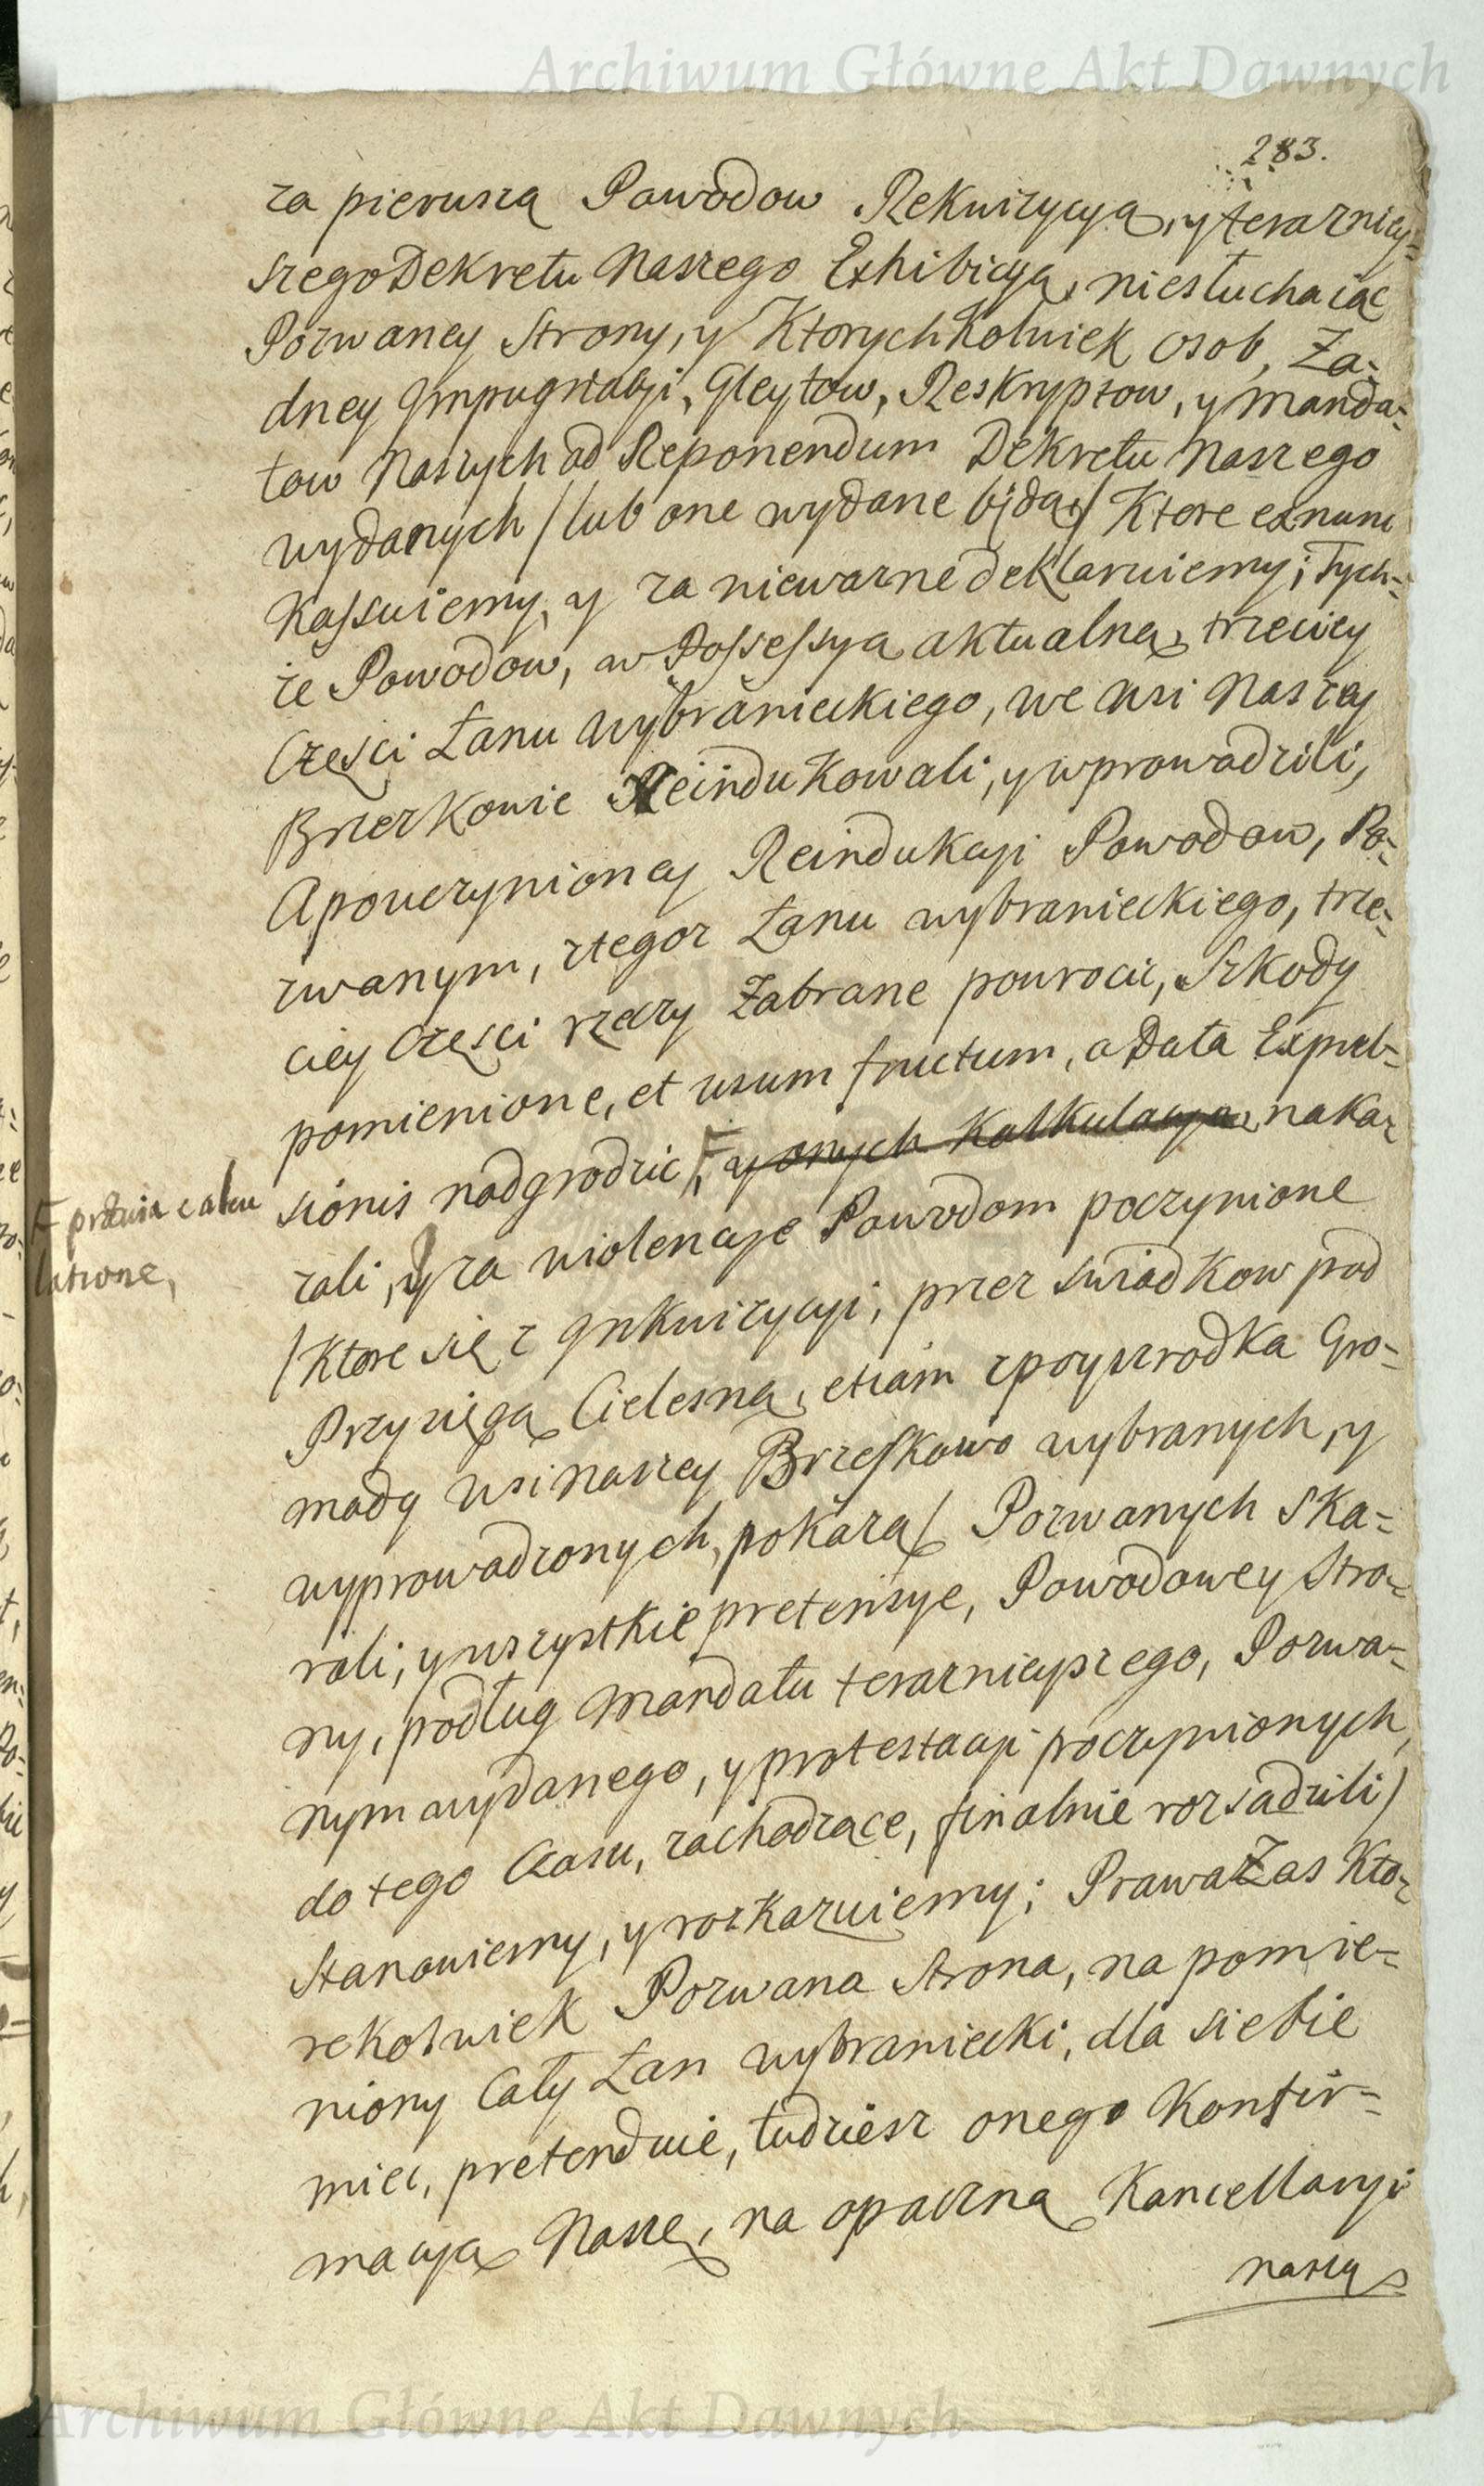 Archiwum Główne Akt Dawnych
283.
za pierwszą Powodow Rekwizycyą, y terazniey=
szego Dekretu Naszego Exhibicyą, niesłuchaiąc
Pozwaney Strony, y Ktorychkolwiek osob, Ża=
dney Impugnacyi, Gleytow, Reskryptow, y Manda=
tow Naszych ad Reponendum Dekretu Naszego
wydanych / lub one wydane będą / Ktore exnunc
Kassuiemy, y za niewazne deklaruiemy; Tych=
ze Powodow, w Possessyą aktualną, trzeciey
Częsci Łanu Wybranieckiego, we Wsi Naszey
Brzezkowie Reindukowali, y wprowadzili,
A po uczynioney Reindukcyi Powodow, Po=
zwanym, z tegoz Łanu wybranieckiego, trze=
ciey Częsci rzeczy Zabrane powrocic, Szkody
pomienione, et usum fructum, a Data Expul=
sionis nadgrodzic F, y onych Kalkulacyą, nakaz
F prævia calcu
latione,
zali, y za wiolencye Powodom poczynione
/ Ktore się z Inkwizycyi, przez swiadkow pod
Przysięgą Cielesną, etiam zposzrodka Gro=
mady wsi Naszey Brzeskowo wybranych, y
wyprowadzonych, pokażą / Pozwanych Ska=
zali, y wszystkie pretensye, Powodowey Stro=
ny, podług Mandatu terazniey szego, Pozwa=
nym wydanego, y protestacyi poczynionych,
do tego Czasu, zachodzące, finalnie rozsądzili /
Stanowiemy, y rozkazuiemy; Prawa Zas Kto=
rekolwiek Pozwana Strona, na pomie=
niony Cały Łan wybraniecki, dla siebie
miec, pretenduie, tudziesz onego Konfir=
macyą Naszę, na opaczną Kancellaryi
naszey
Archiwum Główne Akt Dawnych